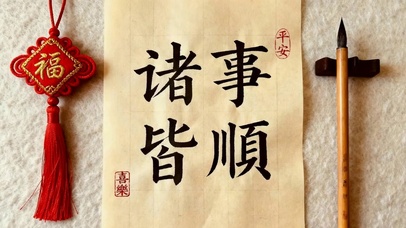 福
诸事
皆順
平安
喜樂